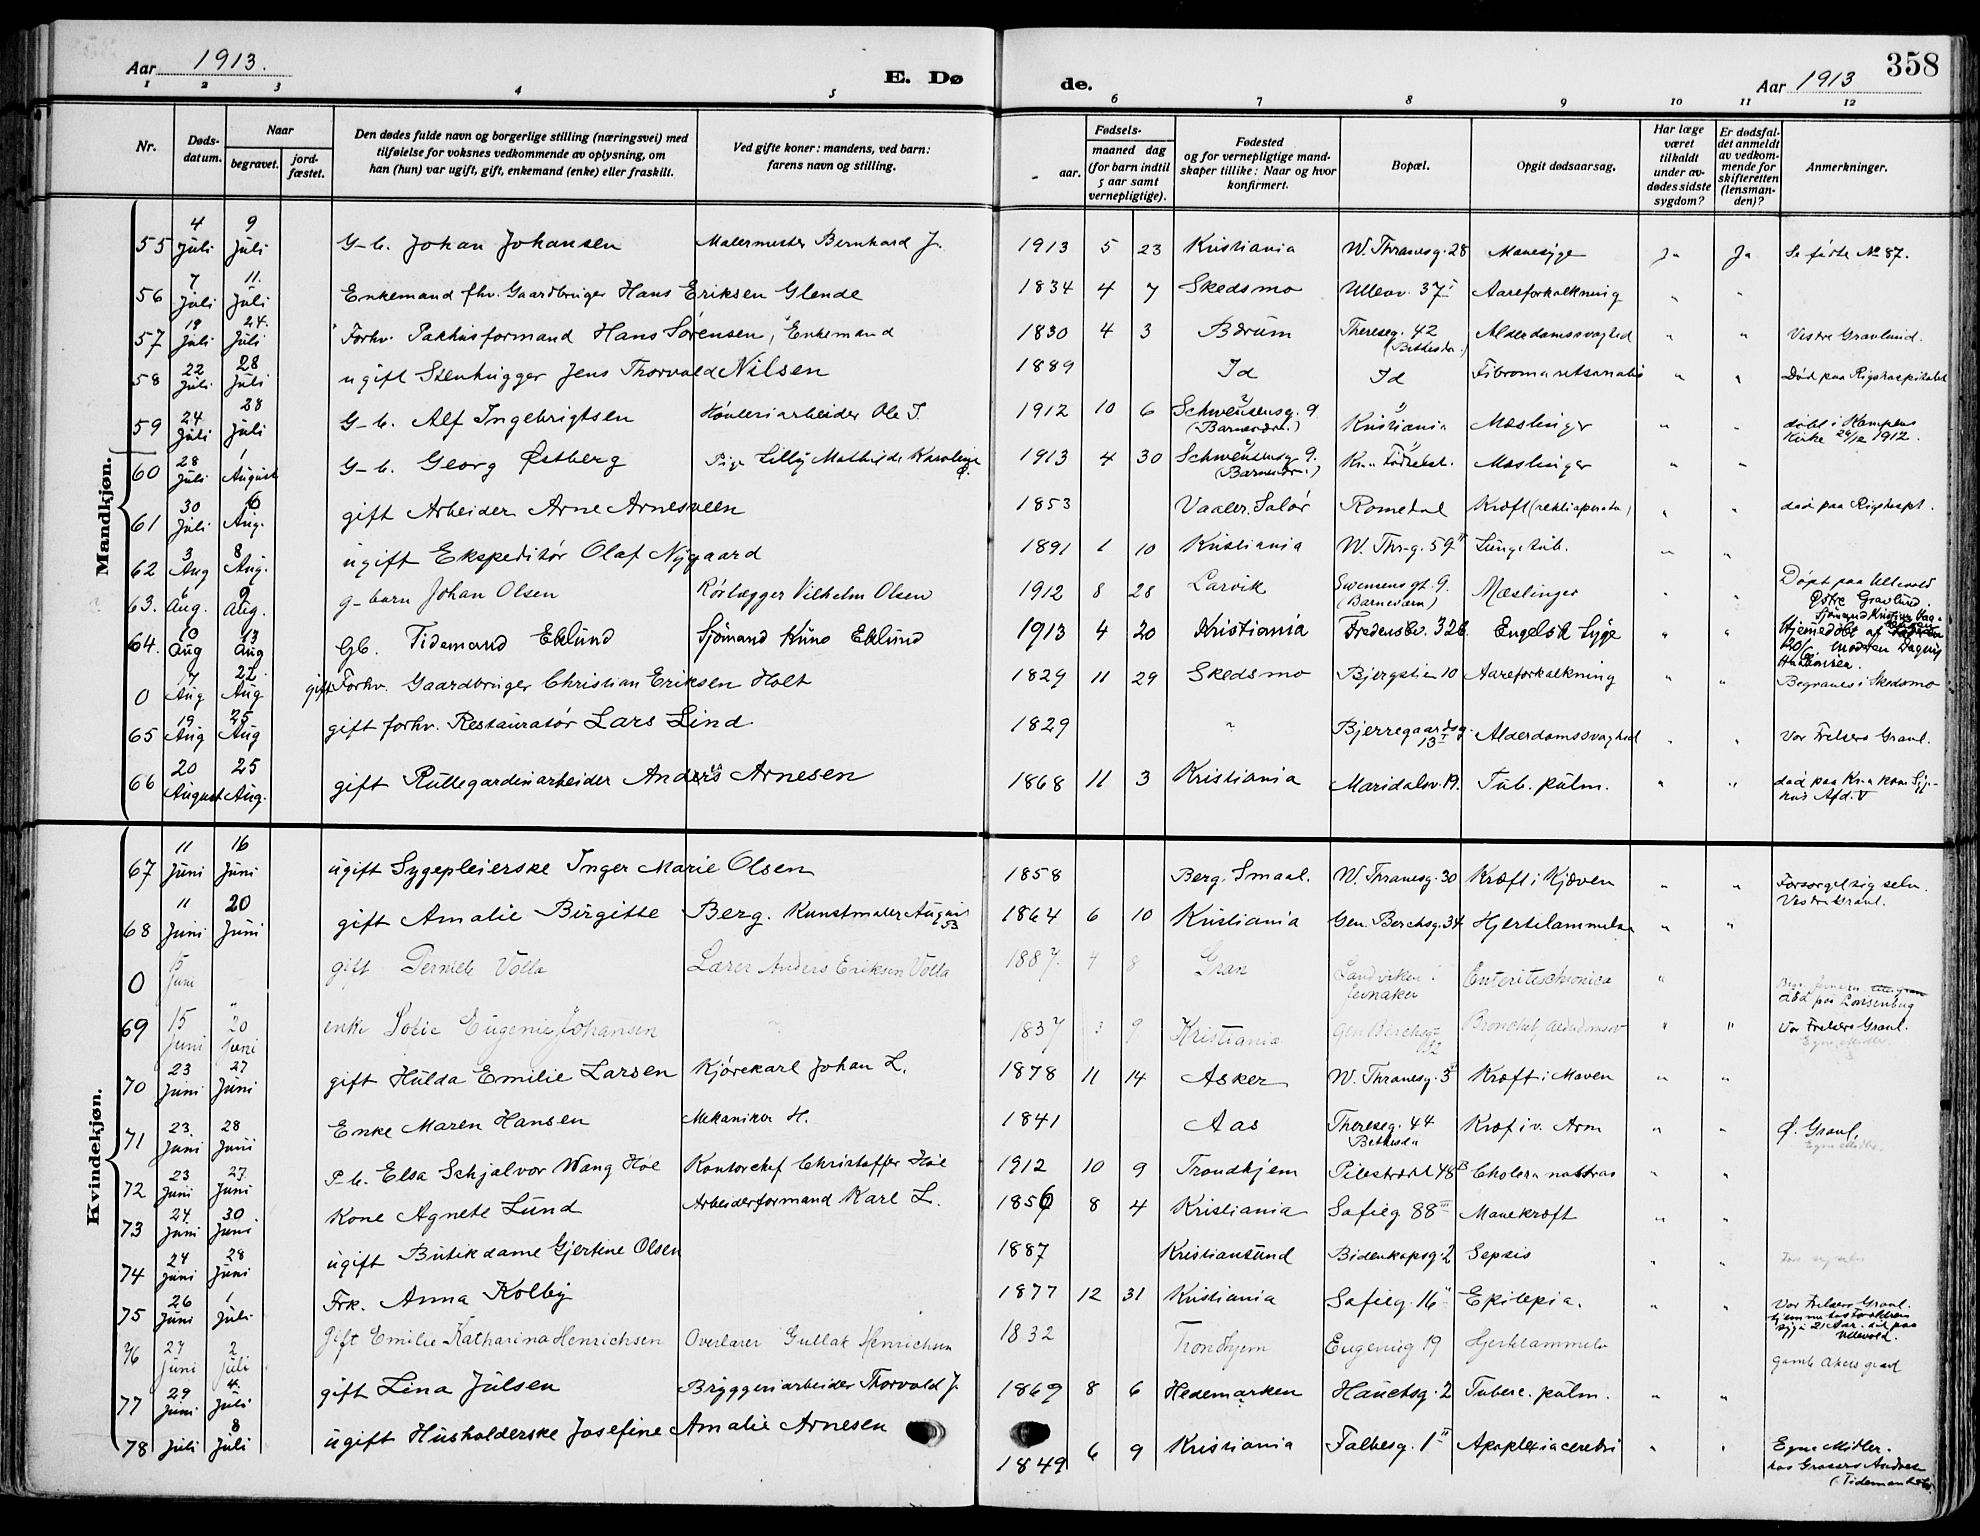 Aar 1913.
E. Dø
de.
Aar 1913
358
1 2 3 4 5 6 7 8 9 10 11 12
Nr.
Døds-datum.
Naar
begravet.
jord-fæstet.
Den dødes fulde navn og borgerlige stilling (næringsvei) med tilføielse for voksnes vedkommende av oplysning, om han (hun) var ugift, gift, enkemand (enke) eller fraskilt.
Ved gifte koner: mandens, ved barn: farens navn og stilling.
Fødsels-
aar.
maaned dag (for barn indtil 5 aar samt vernepligtige).
Fødested og for vernepligtige mandskaper tillike: Naar og hvor konfirmert.
Bopæl.
Opgit dødsaarsag.
Har læge været tilkaldt under avdødes sidste sygdom?
Er dødsfaldet anmeldt av vedkommende for skifteretten (lensmanden)?
Anmerkninger.
Mandkjøn.
55 4 Juli 9 Juli G-b. Johan Johansen Malermester Bernhard J. 1913 5 23 Kristiania W. Thranesg. 28 Mavesyge Ja Ja Se fødte No 87.
56 7 Juli 11. Juli Enkemand fhv. Gaardbruger Hans Eriksen Glende 1834 4 7 Skedsmo Ullev. 37 I Aareforkalkning " "
57 19 Juli 24. Juli Forhv. Pakhusformand Hans Sørensen, Enkemand 1830 4 3 Bærum Thereseg. 42 (Bethesda.) Alderdomssvaghed " " Vestre Gravlund.
58 22 Juli 28 Juli ugift Stenhugger Jens Thorvald Nilsen 1889 Id Id " " Død paa Rigshospitalet
59 24 Juli 28 Juli G-b. Alf Ingebrigtsen Høvleriarbeider Ole I. 1912 10 6 Schwensensg. 9. (Barneværn.) Kristiania Mæslinger " " døbt i Kampens Kirke 26/12 1912.
60 28 Juli 1 August G-b. Georg Østberg Pige Lilly Mathilde Karoline Ø. 1913 4 30 Schwensensg 9. (Barneværn.) Kr.a Fødselst. Mæslinger " "
61 30 Juli 6 Aug. gift Arbeider Arne Arnesveen 1853 Vaaler, Solør Romedal Kræft " " død paa Rigshospt.
62 3 Aug 8 Aug. ugift Ekspeditør Olaf Nygaard 1891 1 10 Kristiania W. Thr.g. 59 II Lungetub. " "
63. 6 Aug. 9 Aug. g-barn Johan Olsen Rørlægger Vilhelm Olsen 1912 8 28 Larvik Svensensgt. 9. (Barneværn) Mæslinger " " Døpt paa Ullevold Østre Gravlund
64. 10 Aug 13 Aug Gb. Tidemand Eklund Sjømand Kuno Eklund 1913 4 20 Kristiania Fredensbv. 32 b. Engelsk Syge " " Hjemmedøbt af moderen Dagny
0 17 Aug 22. Aug gift Forhv. Gaardbruger Christian Eriksen Holt 1829 11 29 Skedsmo Bjergstien 10 Aareforkalkning " " Begraves i Skedsmo
65 19 Aug 25 Aug gift forhv. Restauratør Lars Lind 1829 " Bjerregaardsg. 13 I Alderdomssvaghed " " Vor Frelsers Gravl.
66 20 August 25 Aug. gift Rullegardinarbeider Anders Arnesen 1868 11 3 Kristiania Maridalsv. 19. Tub. pulm. " " død paa Kr.a kom. Syge-hus Afd. V
Kvindekjøn.
67 11 Juni 16 Juni ugift Sygepleierske Inger Marie Olsen 1858 Berg. Smaal. W. Thranesg. 30 Kræft i Kjæven " " Forsørget sig selv. Vestre Gravl.
68 11 Juni 20 Juni gift Amalie Birgitte Berg. Kunstmaler August B 1864 6 10 Kristiania Gen. Berchsg. 34 Hjertelammelse " "
0 15 Juni gift Pernille Volla Lærer Anders Eriksen Volla 1887. 4 8 Gran Sandviken i Jevnaker Enteritis chronica " død paa Lovisenberg
69 15 Juni 20 Juni enke Sofie Eugenie Johansen 1837 3 9 Kristiania Gen Berchsg. Bronchit alderdomssv " " Vor Frelsers Gravl. Egne Midler.
70 23 Juni 27 Juni gift Hulda Emilie Larsen Kjørekarl Johan L. 1878 11 14 Asker W. Thranesg. 3 Kræft i Maven " "
71 23. Juni 28 Juni Enke Maren Hansen Mekaniker H. 1841 Aas Thereseg. 44 Bethesda Kræf i v. Arm " " Ø. Gravl. Egne Midler.
72 23 Juni 27. Juni P-b. Elsa Schjalvor Wang Høe Kontorchef Christoffer Høe 1912 10 9 Trondhjem Pilestrædet 48 B Cholera nostras " "
73 24. Juni 30 Juni Kone Agnete Lund Arbeiderformand Karl L. 1856 8 4 Kristiania Sofieg 88 III Mavekræft " "
74 24 Juni 28 Juni ugift Butikdame Gjertine Olsen 1887 Kristiansund Bidenkapsg. 2 Sepsis " "
75 26 Juni 1 Juli Frk. Anna Kolby 1877 12 31 Kristiania Sofieg. 16 II Epilepia. " " Vor Frelsers Gravl. hjemme hos Forældrene syg i 21 Aar. død paa Ullevold.
76 27 Juni 2 Juli Gift Emilie Katharina Henrichsen Overlærer Gullak Henrichsen 1832 Trondhjem Eugeniag 19 Hjertelammelse gamle Akers gravl
77 29 Juni 4. Juli gift Lina Julsen Bryggeriarbeider Thorvald J. 1869 8 6 Hedemarken Hauchsg. 2 Tuberc. pulm. " "
78 Juli 8 Juli ugift Husholderske Josefine Amalie Arnesen 1849 6 9 Kristiania Falbesg. 1 II Apoplexia cerebri " " Egne Midler. hos Grosserer (Tidemand